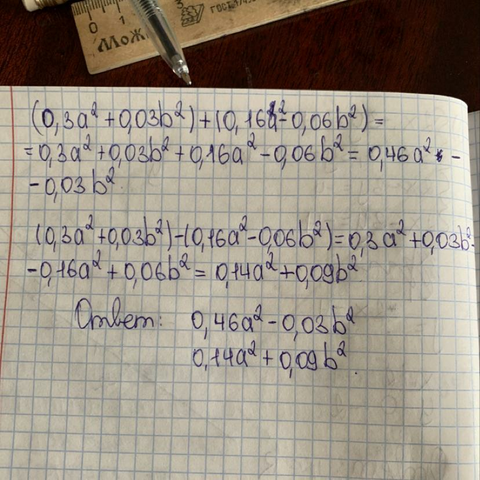 0 1
МОЖ
ГОСТ
(0,3a² + 0,03b²) + (0,16a² - 0,06b²) =
= 0,3a² + 0,03b² + 0,16a² - 0,06b² = 0,46a² -
- 0,03b²
(0,3a² + 0,03b²) - (0,16a² - 0,06b²) = 0,3a² + 0,03b² -
- 0,16a² + 0,06b² = 0,14a² + 0,09b²
Ответ: 0,46a² - 0,03b²
0,14a² + 0,09b²